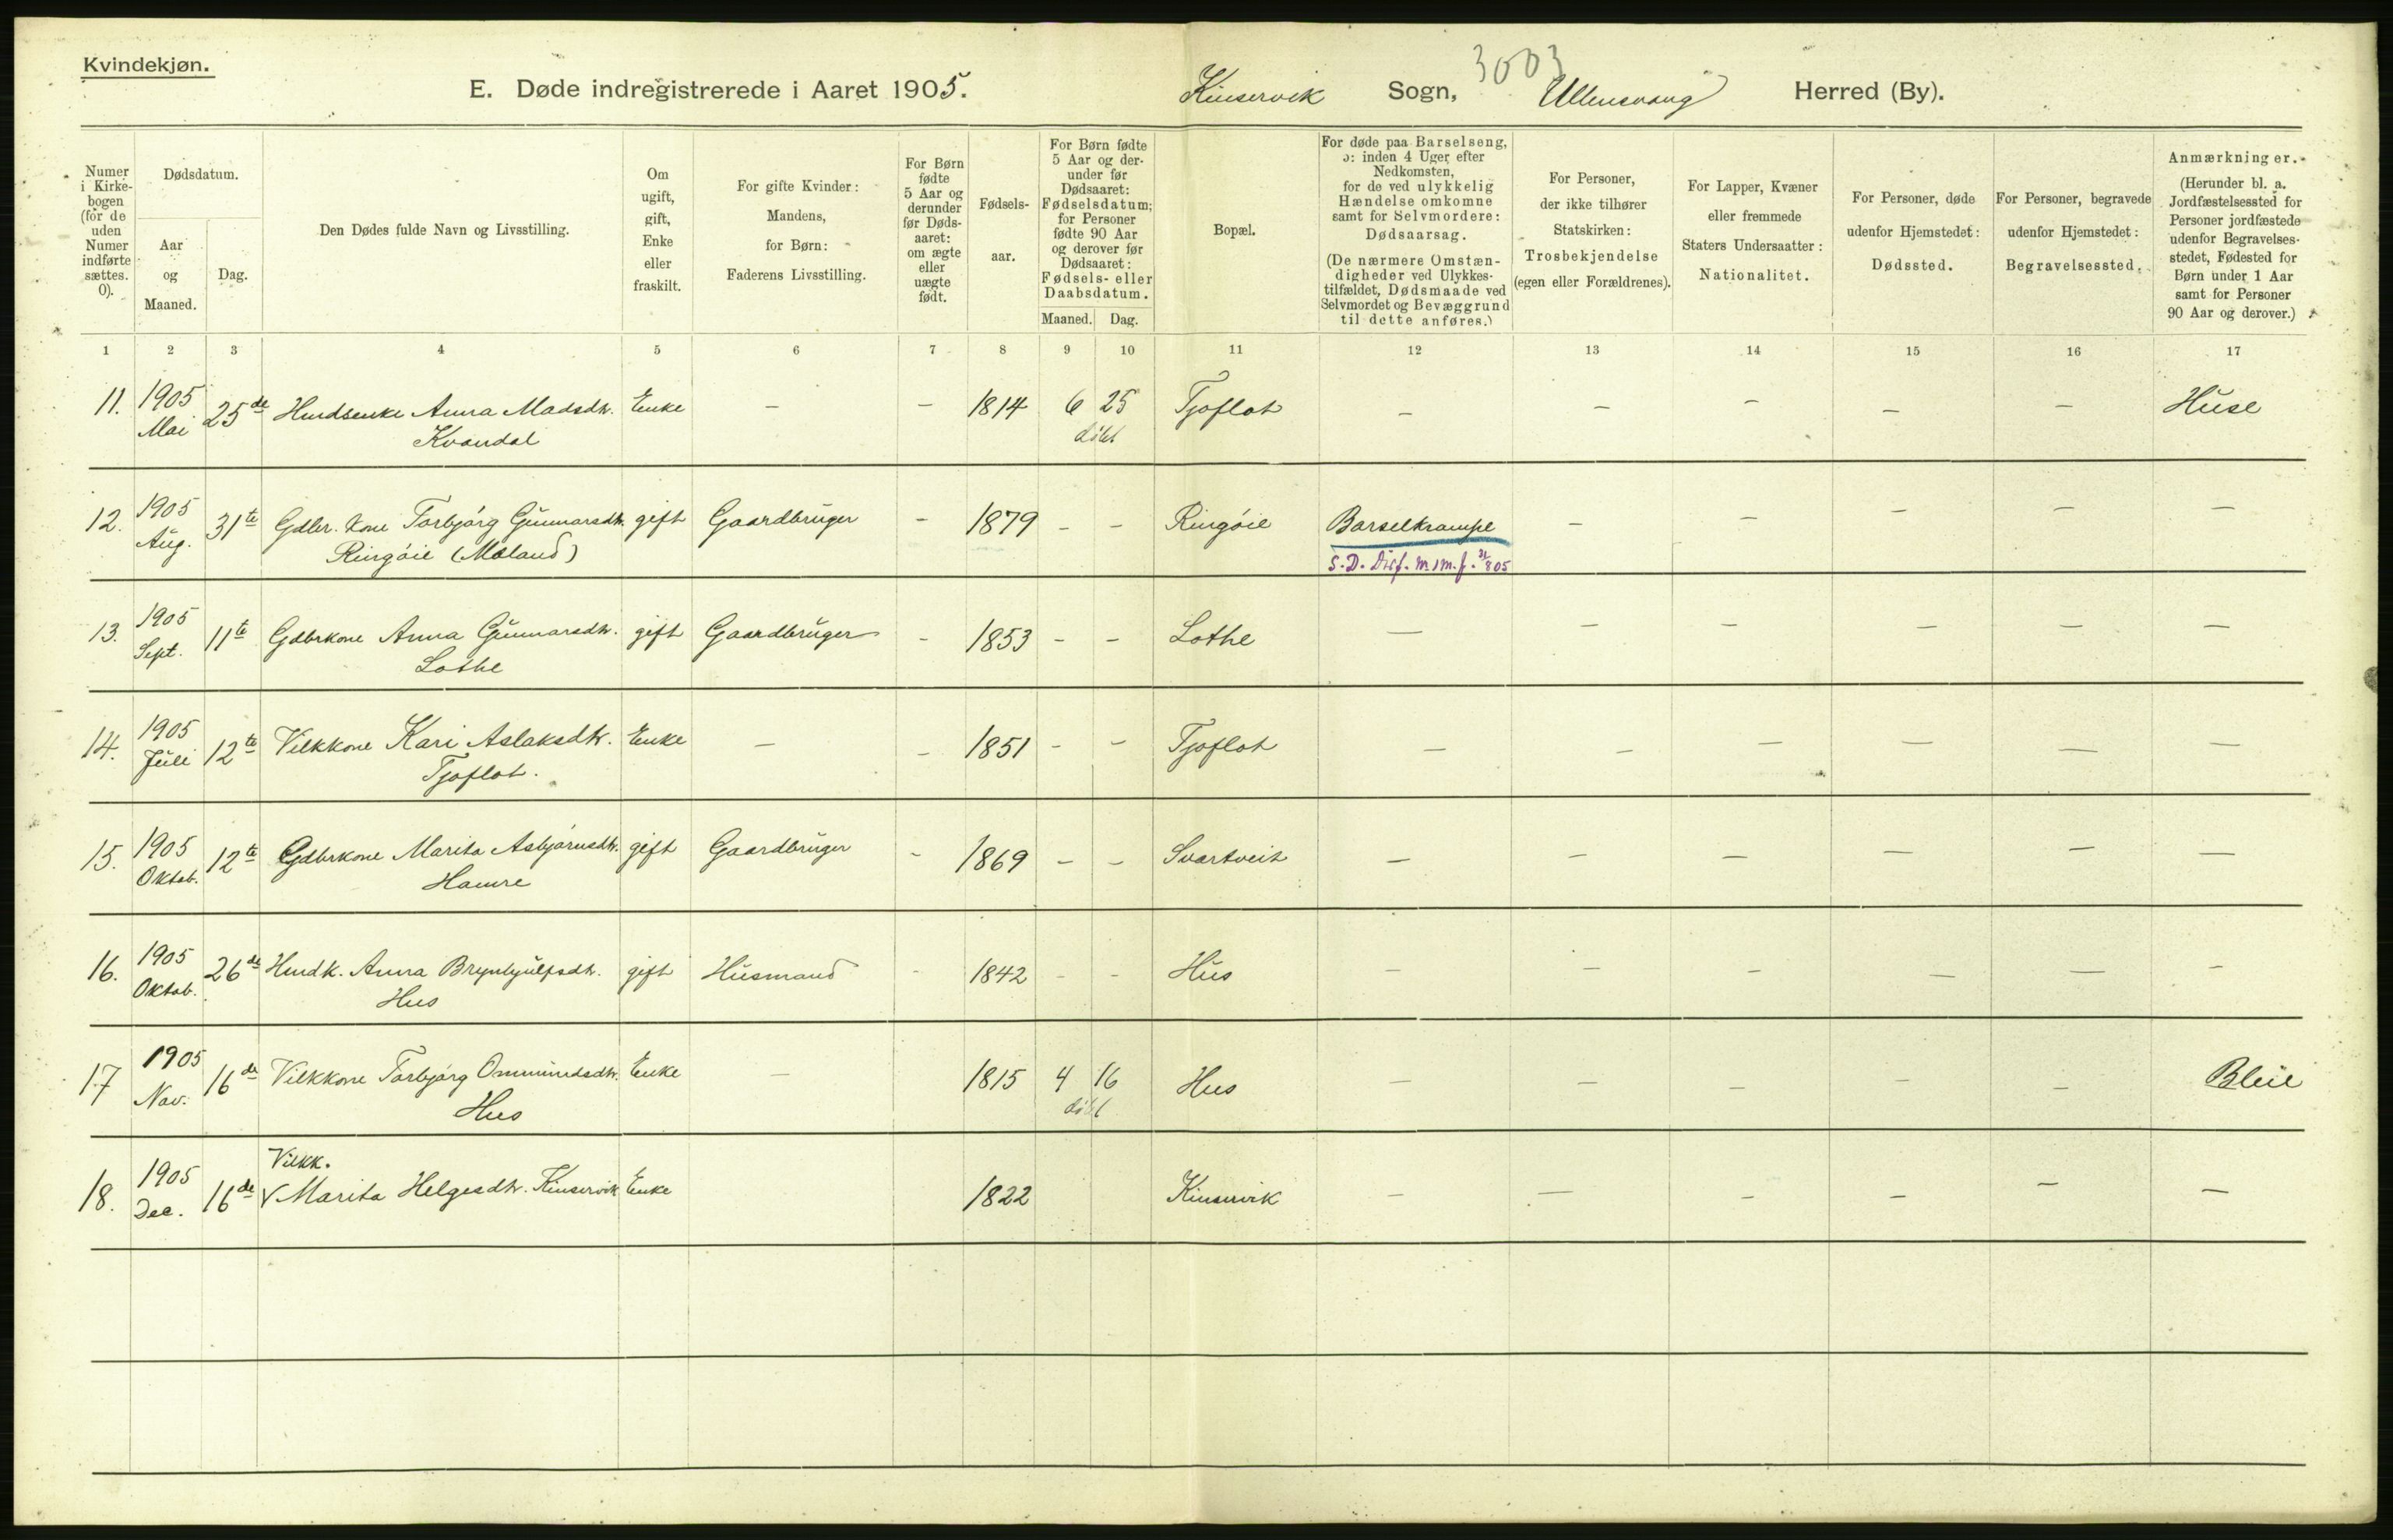 Kvindekjøn.
3003
E. Døde indregistrerede i Aaret 1905. Kinservik Sogn, Ullensvang Herred (By).
Numer i Kirke-bogen (for de uden Numer indførte sættes. 0).
Dødsdatum.
Aar og Maaned.
Dag.
Den Dødes fulde Navn og Livsstilling.
Om ugift, gift, Enke eller fraskilt.
For gifte Kvinder: Mandens, for Børn: Faderens Livsstilling.
For Børn fødte 5 Aar og derunder før Døds-aaret: om ægte eller uægte født.
Fødsels-aar.
For Børn fødte 5 Aar og der-under før Dødsaaret: Fødselsdatum; for Personer fødte 90 Aar og derover før Dødsaaret: Fødsels- eller Daabsdatum.
Maaned. Dag.
Bopæl.
For døde paa Barselseng, ɔ: inden 4 Uger efter Nedkomsten, for de ved ulykkelig Hændelse omkomne samt for Selvmordere: Dødsaarsag.
(De nærmere Omstæn-digheder ved Ulykkes-tilfældet, Dødsmaade ved Selvmordet og Bevæggrund til dette anføres.)
For Personer, der ikke tilhører Statskirken: Trosbekjendelse (egen eller Forældrenes).
For Lapper, Kvæner eller fremmede Staters Undersaatter: Nationalitet.
For Personer, døde udenfor Hjemstedet: Dødssted.
For Personer, begravede udenfor Hjemstedet: Begravelsessted.
Anmærkninger. (Herunder bl. a. Jordfæstelsessted for Personer jordfæstede udenfor Begravelses-stedet, Fødested for Børn under 1 Aar samt for Personer 90 Aar og derover.)
1 2 3 4 5 6 7 8 9 10 11 12 13 14 15 16 17
11. 1905 Mai 25de Husmdsenke Anna Madsdtr. Enke – – 1814 6 25 Tjoflot – – – – – Huse
Kvandal døbt
12. 1905 Aug. 31te Gdbr. kone Torbjórg Gunnarsdtr. gift Gaardbruger – 1879 – – Ringóie Barselkrampe – – – – –
Ringóie (Måland) S.D. Dif. m. 1m. f. 31/8 05
13. 1905 Sept. 11te Gdbrkone Anna Gunnarsdtr. gift Gaardbruger – 1853 – – Lothe – – – – – –
Lothe
14. 1905 Juli 12te Vilkkone Kari Aslaksdtr. Enke – – 1851 – – Tjoflot – – – – – –
Tjoflot.
15. 1905 Oktob. 12te Gdbrkone Marita Asbjórnsdtr. gift Gaardbruger – 1869 – – Svartveit – – – – – –
Hamre
16. 1905 Oktob. 26de Hmdk. Anna Brynhjulfsdtr. gift Husmand – 1842 – – Hus – – – – – –
Hus
17 1905 Nov. 16de Vilkkone Torbjórg Ommundsdtr. Enke – 1815 4 16 Hus – – – – – Bleie
Hus døbt
Vilkk.
18. 1905 Dec. 16de Marita Helgesdtr. Kinservik Enke 1822 Kinservik – – – – – –